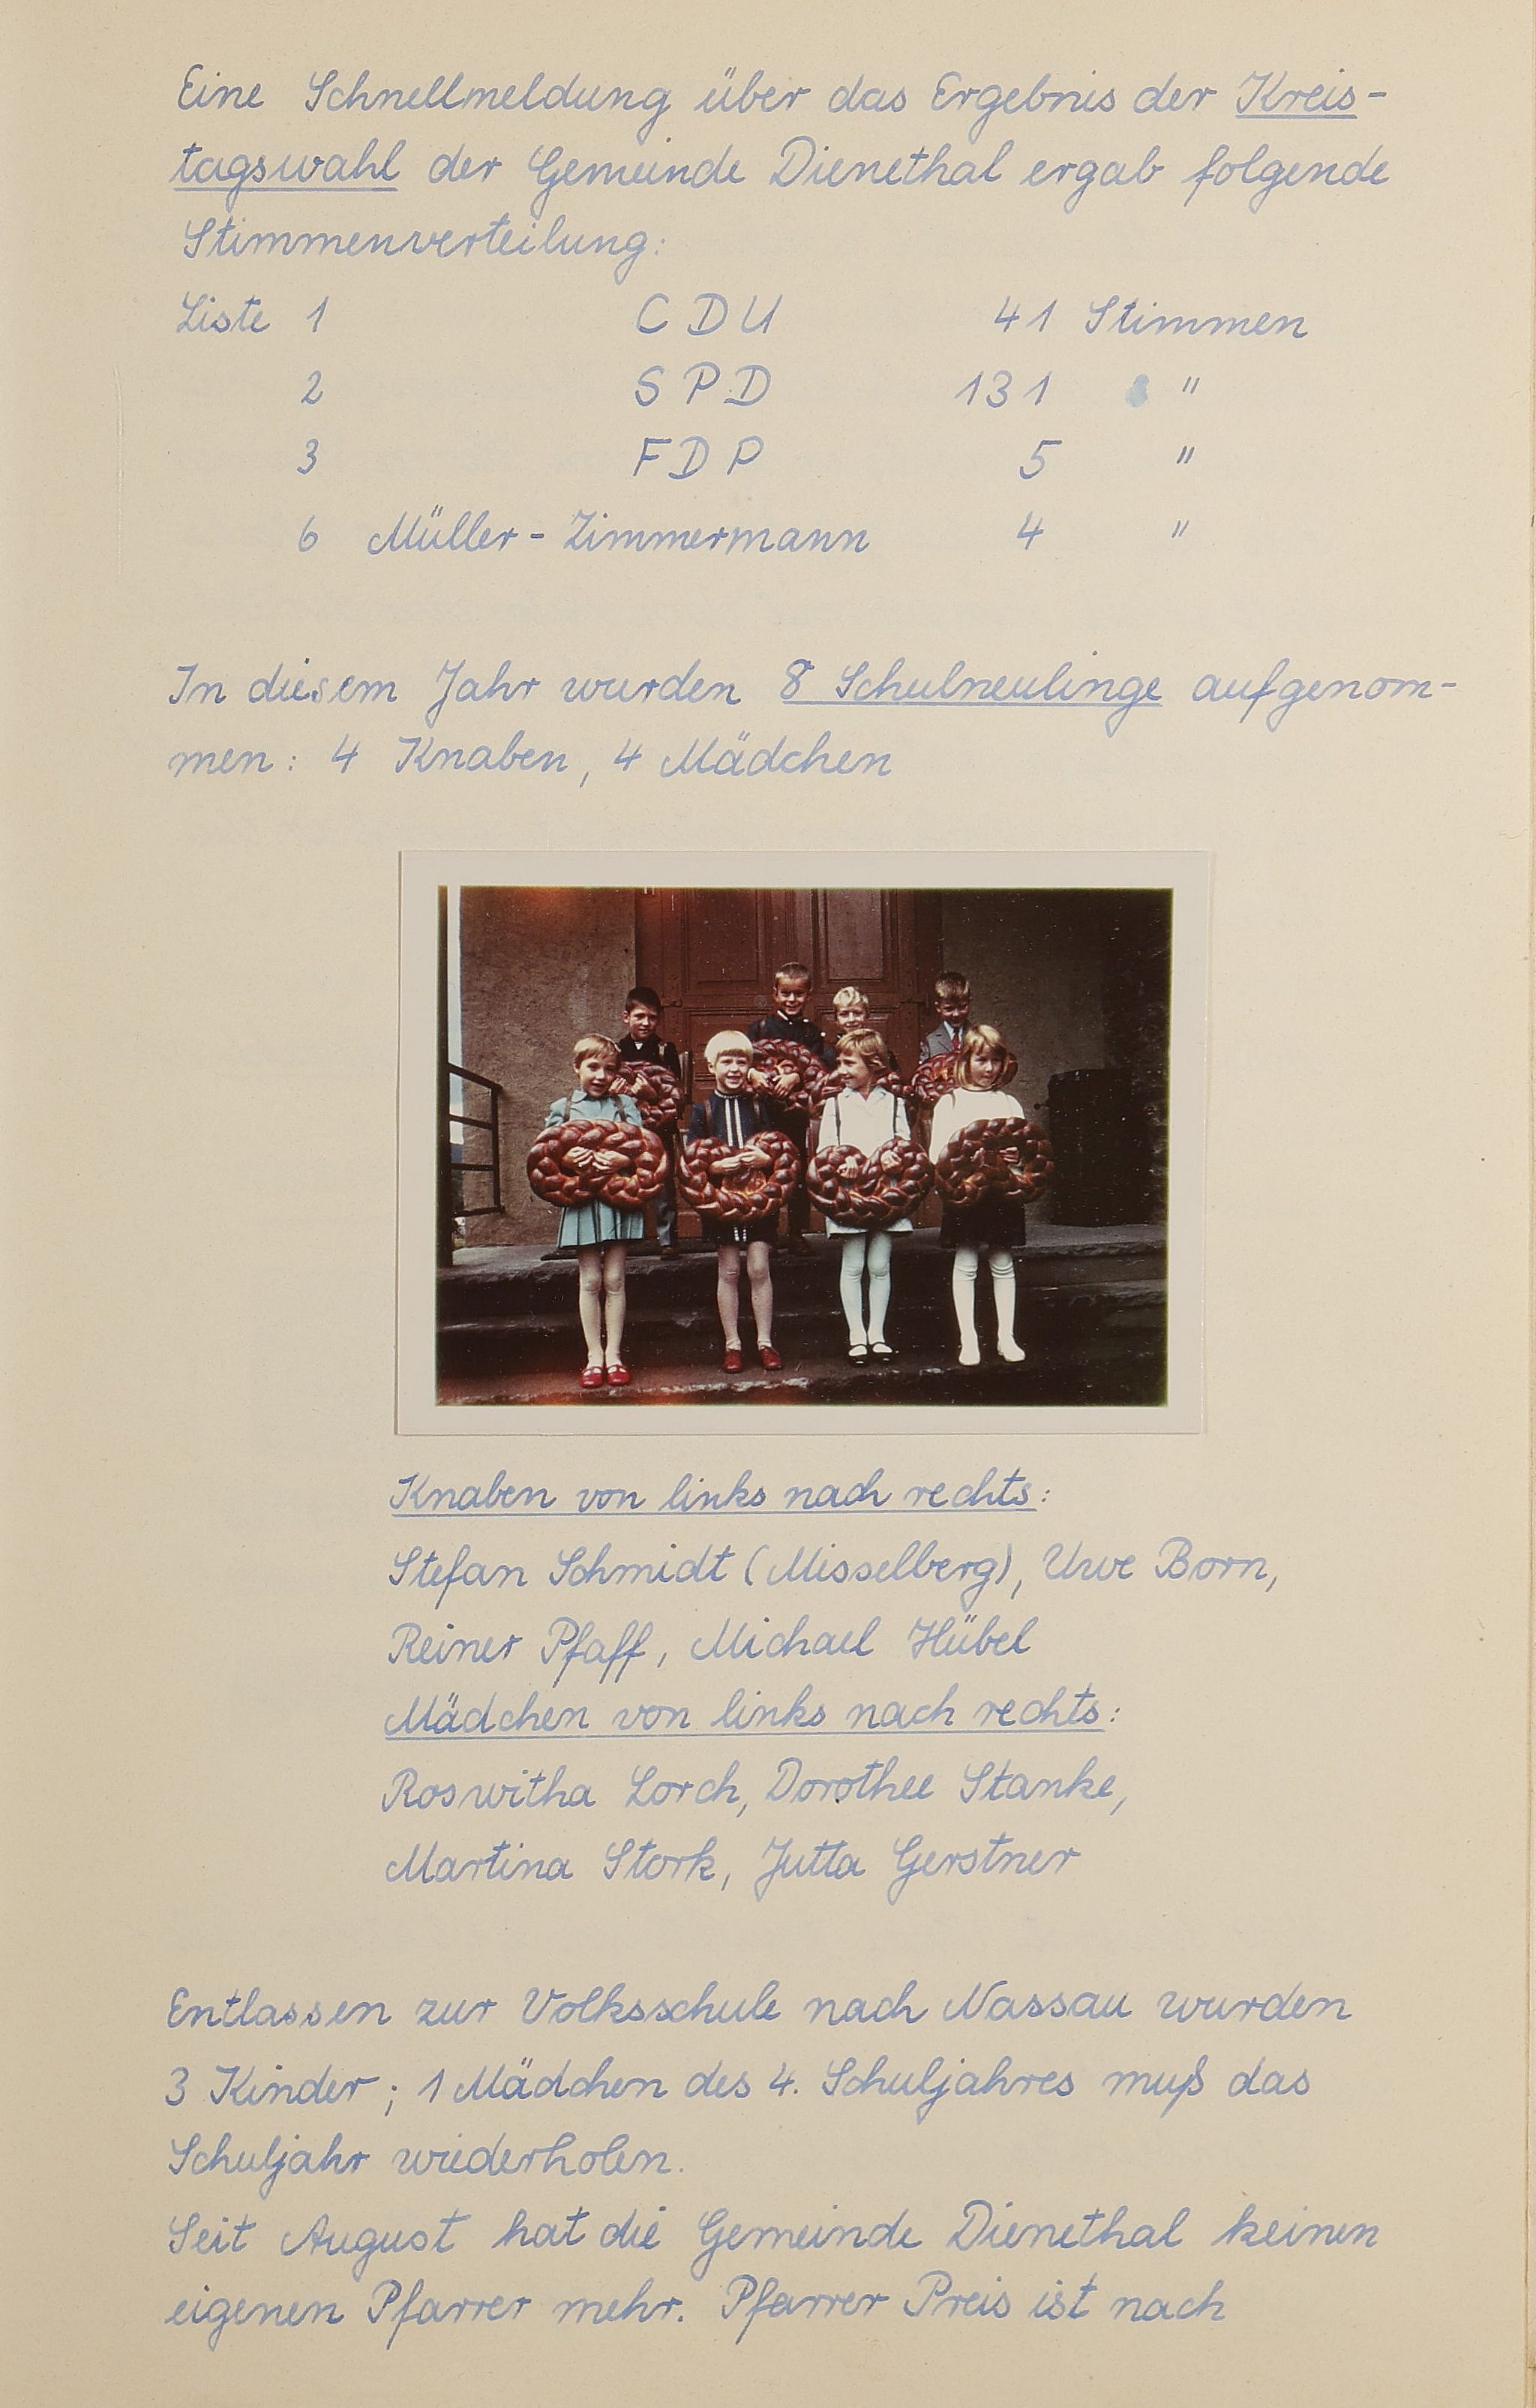 Eine Schnellmeldung über das Ergebnis der Kreis-
tagswahl der Gemeinde Dienethal ergab folgende
Stimmenverteilung:
Liste 1 CDU 41 Stimmen
2 SPD 131 "
3 FDP 5 "
6 Müller-Zimmermann 4 "
In diesem Jahr wurden 8 Schulneulinge aufgenom-
men: 4 Knaben, 4 Mädchen
Knaben von links nach rechts:
Stefan Schmidt (Misselberg), Uwe Born,
Reiner Pfaff, Michael Hübel
Mädchen von links nach rechts:
Roswitha Lorch, Dorothee Stanke,
Martina Stork, Jutta Gerstner
Entlassen zur Volksschule nach Nassau wurden
3 Kinder; 1 Mädchen des 4. Schuljahres muß das
Schuljahr wiederholen.
Seit August hat die Gemeinde Dienethal keinen
eigenen Pfarrer mehr. Pfarrer Preis ist nach